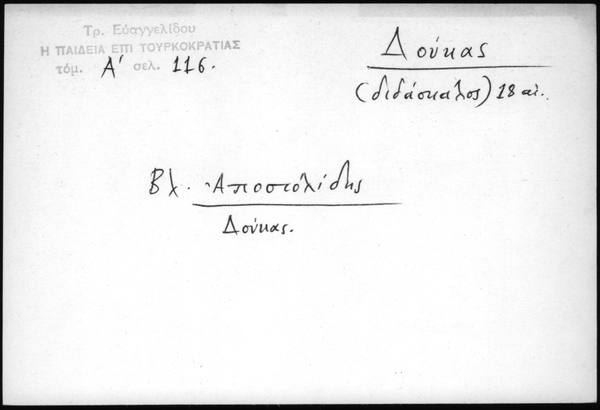 Τρ. Εὐαγγελίδου
Η ΠΑΙΔΕΙΑ ΕΠΙ ΤΟΥΡΚΟΚΡΑΤΙΑΣ
τόμ. Α' σελ. 116.
Δούκας
(διδάσκαλος) 18 αἰ.
Βλ. Ἀποστολίδης
Δούκας.